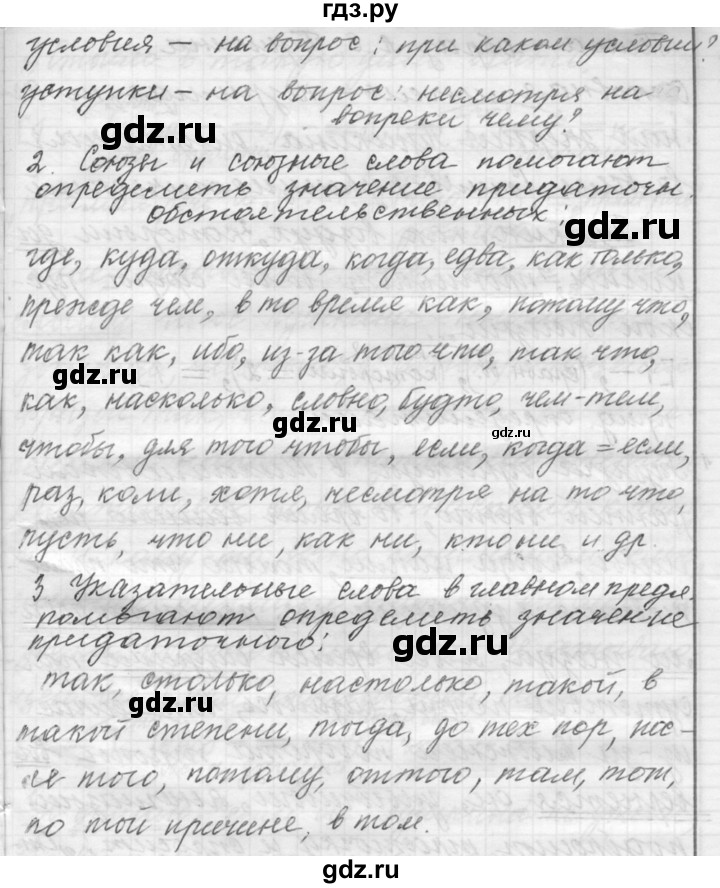 гдз.ру
условия – на вопрос: при каком условии?
уступки – на вопрос: несмотря на
вопреки чему?
gdz.ru
2. Союзы и союзные слова помогают
определить значение придаточн.
обстоятельственных:
gdz.ru
где, куда, откуда, когда, едва, как только,
прежде чем, в то время как, потому что,
так как, ибо, из-за того что, так что,
gdz.ru
как, насколько, словно, будто, чем-тем,
gdz.ru
чтобы, для того чтобы, если, когда = если,
раз, коли, хотя, несмотря на то что,
пусть, что ни, как ни, кто ни и др.
3. Указательные слова в главном предл.
помогают определить значение
придаточного:
gdz.ru
так, столько, настолько, такой, в
такой степени, тогда, до тех пор, пос-
ле того, потому, оттого, там, тот,
gdz.ru
по той причине, в том.
gdz.ru
gdz.ru